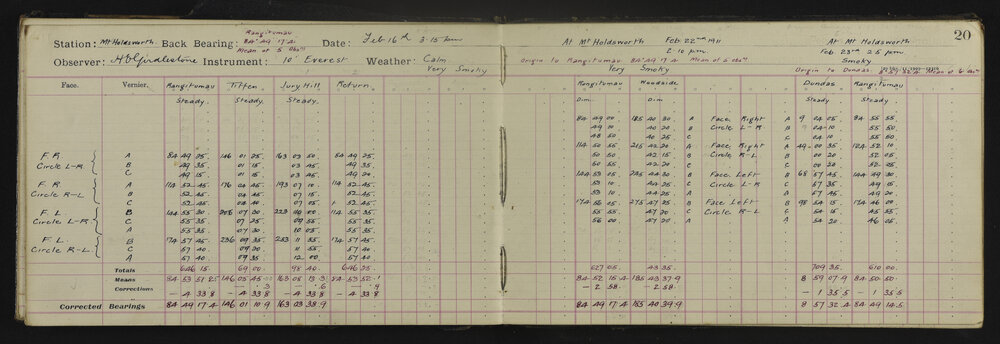 20
Rangitumau
Station: Mt Holdsworth Back Bearing: 84° 49' 17.4" Date: Feb 16th 3.15 pm
Mean of 5 obsns
At Mt Holdsworth Feb 22nd 1911
2.10 pm
At Mt Holdsworth
Feb. 23rd 2.5 pm
Observer: H D Girdlestone Instrument: 10" Everest Weather: Calm
Very Smoky
Origin to Rangitumau 84° 49' 17.4 Mean of 5 obsn
Very Smoky
Smoky
Origin to Dundas 8° 57' 32.4 Mean of 6 obsn
Face. Vernier. Rangitumau Titfen. Jury Hill Return. Rangitumau Woodside Dundas Rangitumau
Steady. Steady. Steady. Dim. Dim. Steady Steady
84 49 00 185 40 30 A Face Right A 9 04 05 84 55 55
49 10 40 20 B Circle L-R B 9 04 10 55 50
48 50 40 25 C C 04 10 55 50
114 50 55 215 42 20 A Face Right A 49-00 35 124 52 10
50 50 42 15 B Circle R-L B 00 20 52 05
F.R A 84 49 25 146 01 25 163 03 50 84 49 25
Circle L-R B 49 35 01 15 03 45 49 35
C 49 15 01 15 03 45 49 20
50 55 42 20 C C 00 20 52 05
144 53 05 245 44 30 A Face Left B 68 57 45 144 49 30
53 10 44 25 B Circle L-R C 57 35 49 15
F.R A 114 52 45 176 04 45 193 07 10 114 52 45
Circle R-L B 52 45 04 40 07 15 52 45
C 52 45 04 40 07 05 52 45
53 10 44 25 C A 57 45 49 20
174 56 05 275 47 25 B Face Left B 98 54 15 174 46 00
F.L B 144 55 30 206 07 30 223 10 00 144 55 35
Circle L-R C 55 35 07 25 09 55 55 35
A 55 35 07 30 10 05 55 35
55 55 47 20 C Circle R-L C 54 15 45 55
56 00 47 20 A A 54 20 46 05
F.L B 174 57 45 236 09 35 253 11 55 174 57 45
Circle R-L C 57 40 09 20 11 55 57 40
A 57 40 09 35 12 00 57 40
Totals 646 15 69 00 98 40 646 25 627 05 43 35 709 35 610 00
Means 84 53 51.25 146 05 45 163 08 13.3 84 53 52.1 84 52 15.4 185 43 37.9 8 59 07.9 84 50 50
Corrections .3 .6 .9
- 4 33.8 - 4 33.8 - 4 33.8 - 4 33.8 - 2 58 - 2 58 - 1 35.5 - 1 35.5
Corrected Bearings 84 49 17.4 146 01 10.9 163 03 38.9 84 49 17.4 185 40 39.9 8 57 32.4 84 49 14.5